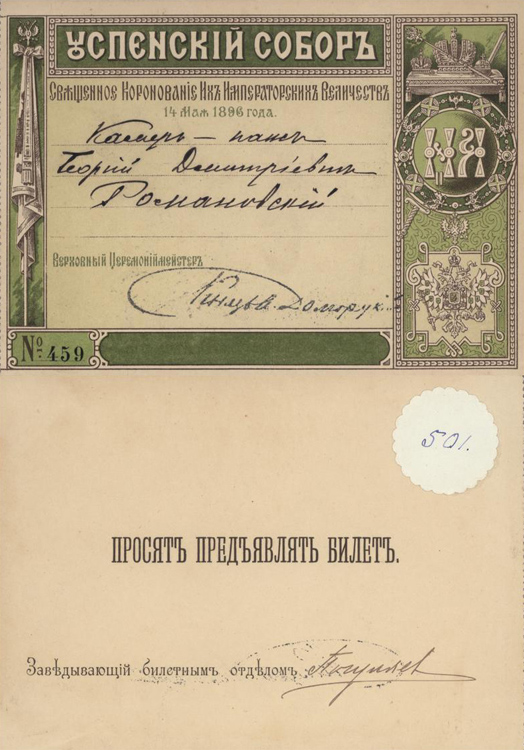 УСПЕНСКІЙ СОБОРЪ
Священное Коронованіе Ихъ Императорскихъ Величествъ
14 Мая 1896 года.
Камеръ-пажъ
Георгій Дмитріевичъ
Романовскій
Верховный Церемоніймейстеръ
Князь Долгорукій
№ 459
501.
ПРОСЯТЪ ПРЕДЪЯВЛЯТЬ БИЛЕТЪ.
Завѣдывающій билетнымъ отдѣломъ